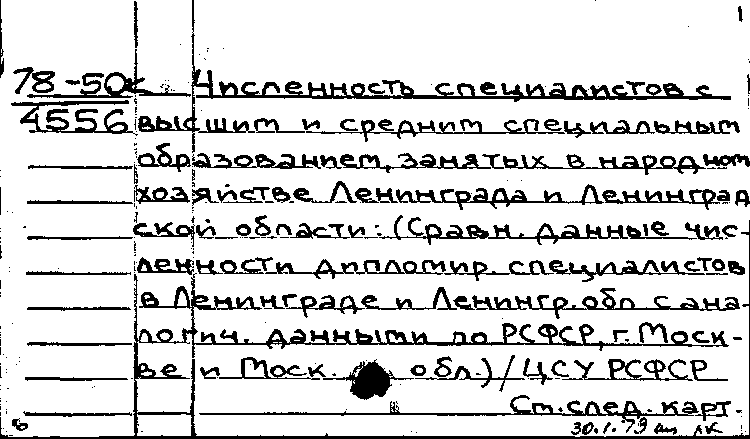 1
78-50к Численность специалистов с
4556 высшим и средним специальным
образованием, занятых в народном
хозяйстве Ленинграда и Ленинград
ской области: (Сравн. данные чис-
ленности дипломир. специалистов
в Ленинграде и Ленингр. обл с ана-
логич. данными по РСФСР, г. Моск-
ве и Моск. обл.) / ЦСУ РСФСР
См. след. карт.
30.1.79 лк